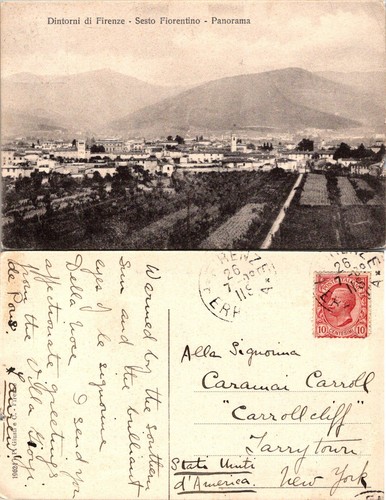 Dintorni di Firenze - Sesto Fiorentino - Panorama
Warmed by the southern
Sun and the brilliant
eyes of he signorine
Della I send you
affectionate greetings
from the Villa
de
FIRENZE
26
7
11
FERR
4*
FIRENZE
26
4*
10 CENTESIMI 10
Alla Signorina
Caramai Carroll
"Carrollcliff"
Tarrytown
Stati Uniti
d'America. New York